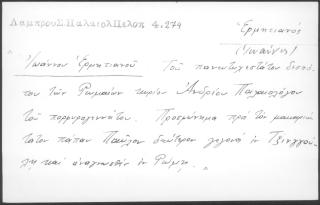 Λάμπρου Σ. Παλαιολ Πελοπ 4.274
Ἑρμητιανός
(Ἰωάννης)
Ἰωάννου Ἑρμητιανοῦ Τοῦ πανευτυχεστάτου δεσπό-
του τῶν Ῥωμαίων κυρίου Ἀνδρέου Παλαιολόγου
τοῦ πορφυρογεννήτου. Προσφώνημα πρὸ τὸν μακαριώ-
τατον πάπαν Παῦλον δεύτερον γεγονὸ ἐν
καὶ ἀναγνωσθὲν ἐν Ῥώμῃ.